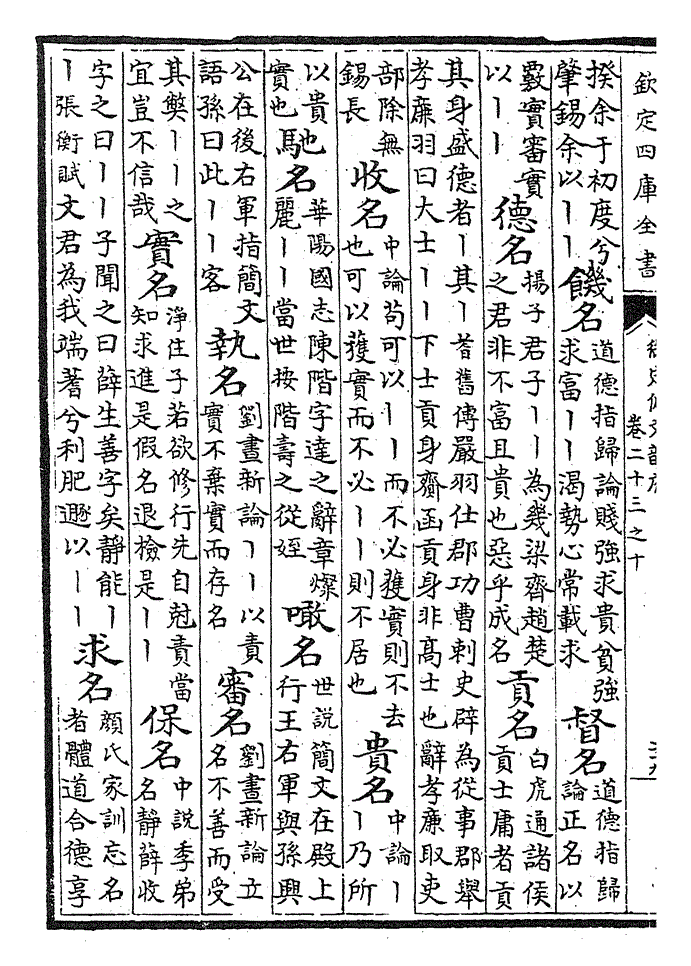 欽定四庫全書
卷二十三之十
揆余于初度兮肇錫余以丨丨 饑名 道德指歸論賤強求貴貧強求富丨丨渴勢心常載求 督名 道德指歸論正名以
覈實審實以丨丨 德名 揚子君子丨丨為幾梁齊趙楚之君非不富且貴也惡乎成名 貢名 白虎通諸侯貢士庸者貢
其身盛德者丨其丨耆舊傳嚴羽仕郡功曹刺史辟為從事郡舉孝廉羽曰大士丨丨下士貢身齎函貢身非高士也辭孝廉取吏
部除無錫長 收名 中論苟可以丨丨而不必獲實則不去也可以獲實而不必丨丨則不居也 貴名 中論丨丨乃所
以貴也實也 馳名 華陽國志陳階字達之辭章燦麗丨丨當世按階壽之從姪 噉名 世說簡文在殿上行王右軍與孫興
公在後右軍指簡文語孫曰此丨丨客 執名 劉晝新論丨丨以責實不棄實而存名 審名 劉晝新論立名不善而受
其弊丨丨之宜豈不信哉 實名 淨住子若欲修行先自尅責當知求進是假名退檢是丨丨 保名 中說季弟名靜薛收
字之曰丨丨子聞之曰薛生善字矣靜能丨丨張衡賦文君為我端蓍兮利肥遯以丨丨 求名 顏氏家訓忘名者體道合德享